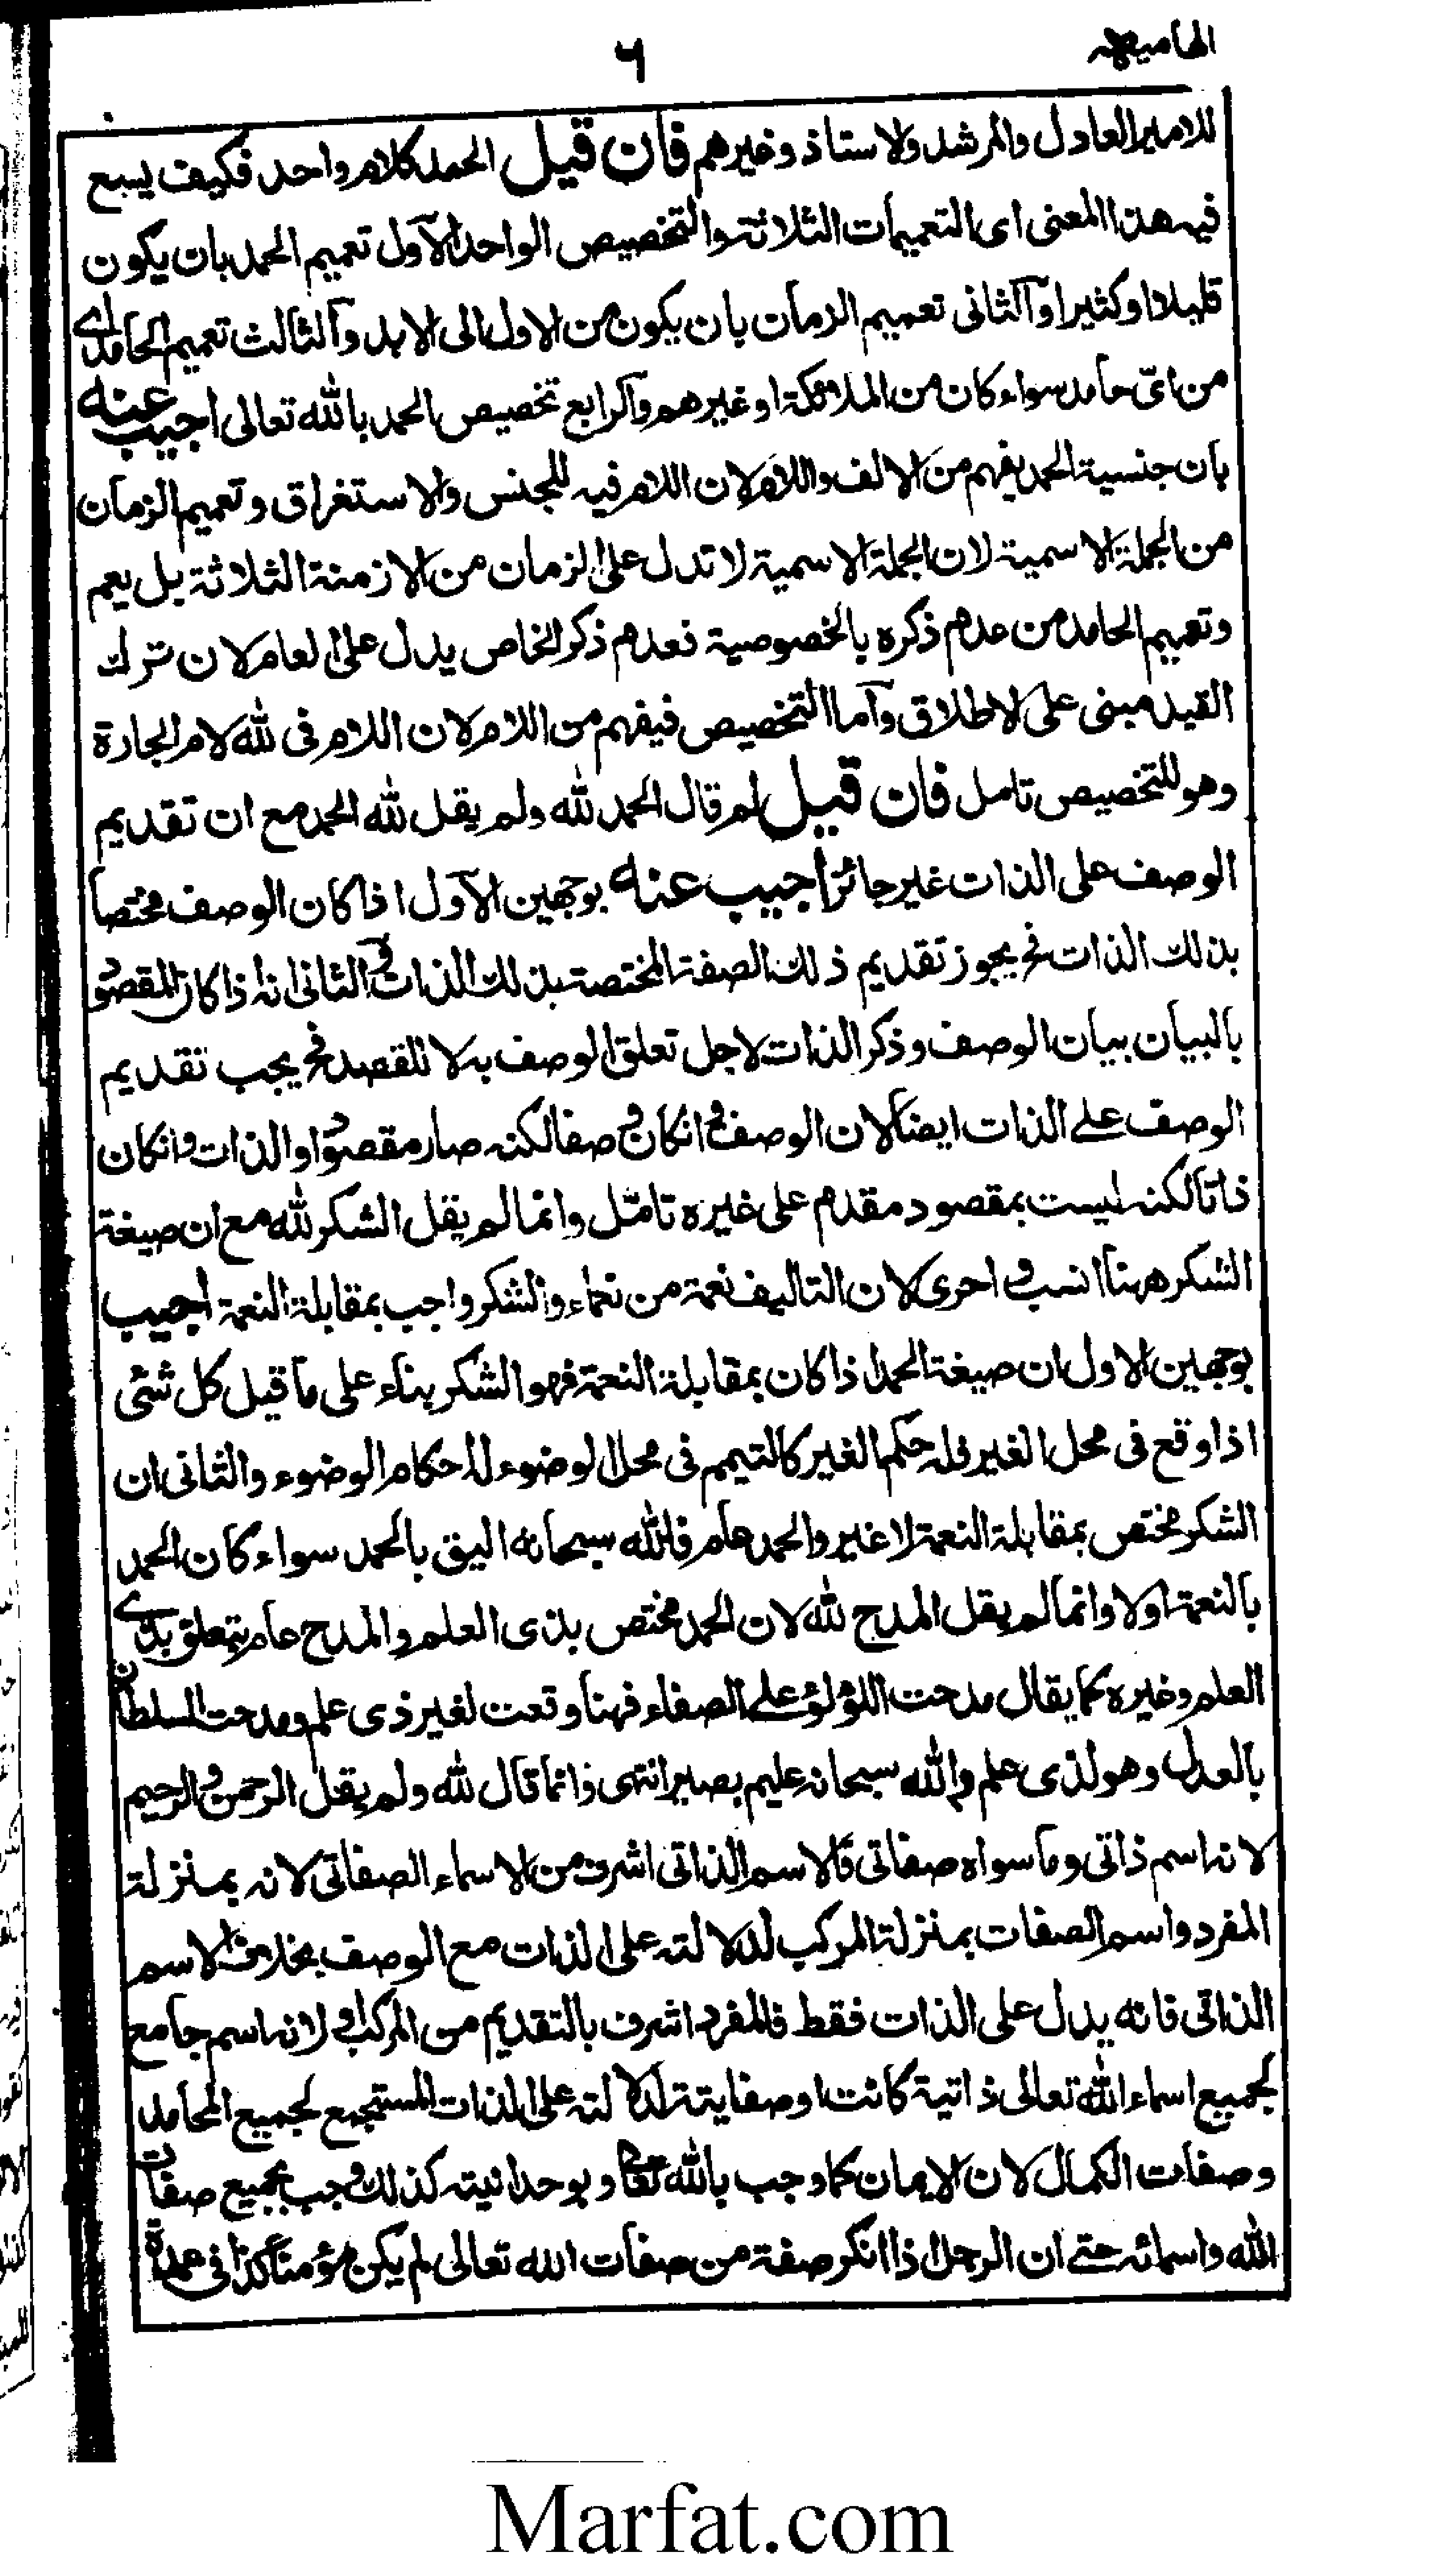 الهاميه
٦
للامير العادل والمرشد ولاستاذ وغيرهم فان قيل الحمد كلام واحد فكيف يسع
فيه هذا المعنى اى التعميمات الثلاثة والتخصيص الواحد الآول تعميم الحمد بان يكون
قليلا او كثيرا وآلثانى تعميم الزمان بان يكون من الاول الى الابد وآلثالث تعميم الحامد اے
من اىّ حامد سواء كان من الملائكة او غيرهم وآلرابع تخصيص الحمد بالله تعالى اجيب عنه
بان جنسية الحمد يفهم من الالف واللام لان اللام فيه للجنس والاستغراق وتعميم الزمان
من الجملة الاسمية لان الجملة الاسمية لا تدل على الزمان من الازمنة الثلاثة بل يعم
وتعميم الحامد من عدم ذكره بالخصوصية فعدم ذكر الخاص يدل على العام لان ترك
القيد مبنى على الاطلاق وآما التخصيص فيفهم من اللام لان اللام فى لله لام الجارة
وهو للتخصيص تامل فان قيل لم قال الحمد لله ولم يقل لله الحمد مع ان تقديم
الوصف على الذات غير جائز اجيب عنه بوجهين الآول اذا كان الوصف مختصا
بذلك الذات فح يجوز تقديم ذلك الصفة المختصة بذلك الذات و الثانى انه اذا كان المقصود
بالبيان بيان الوصف وذكر الذات لاجل تعلق الوصف به لا للقصد فح يجب تقديم
الوصف علے الذات ايضا لان الوصف ح وانكان وصفا لكنه صار مقصودا و الذات وانكان
ذاتا لكنه ليست بمقصود مقدم على غيره تامّل وانما لم يقل الشكر لله مع ان صيغة
الشكر ههنا انسب و احرى لان التاليف نعمة من نعماء والشكر واجب بمقابلة النعمة اجيب
بوجهين الاول ان صيغة الحمد اذا كان بمقابلة النعمة فهو الشكر بناء على ما قيل كل شئى
اذا وقع فى محل الغير فله حكم الغير كالتيمم فى محل الوضوء له احكام الوضوء والثانى ان
الشكر مختص بمقابلة النعمة لا غير والحمد عام فالله سبحانه اليق بالحمد سواء كان الحمد
بالنعمة اولا وانما لم يقل المدح لله لان الحمد مختص بذى العلم والمدح عام يتعلق بذے
العلم وغيره كما يقال مدحت اللؤلؤ علے الصفاء فهنا وقعت لغير ذى علم ومدحت السلطان
بالعدل وهو لذى علم والله سبحانه عليم بصير انتهى وانما قال لله ولم يقل الرحمن و الرحيم
لانه اسم ذاتى وما سواه صفاتى فالاسم الذاتى اشرف من الاسماء الصفاتى لانه بمنزلة
المفرد واسم الصفات بمنزلة المركب لدلالته على الذات مع الوصف بخلاف الاسم
الذاتى فانه يدل على الذات فقط فالمفرد اشرف بالتقديم من المركب و لانه اسم جامع
لجميع اسماء الله تعالى ذاتية كانت او صفايتة لدلالته على الذات المستجمع لجميع المحامد
وصفات الكمال لان الايمان كما وجب بالله تعالى و بوحدانيته كذلك وجب بجميع صفات
الله واسمائه حتے ان الرجل اذا انكر صفة من صفات الله تعالى لم يكن مؤمنا كذا فى عمدة
Marfat.com